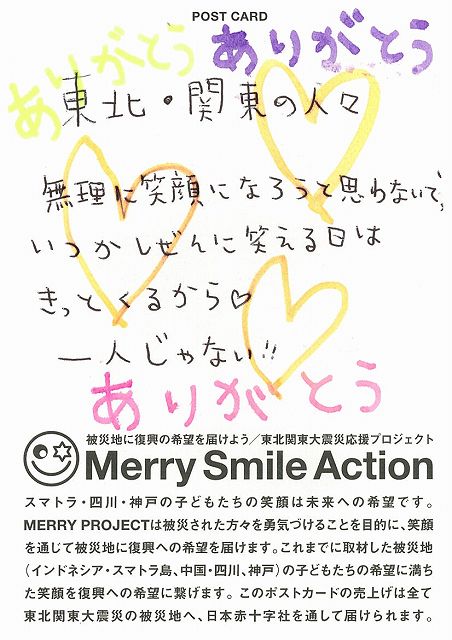 POST CARD
ありがとう
ありがとう
東北・関東の人々
無理に笑顔になろうと思わないで、
いつかしぜんに笑える日は
きっとくるから♡
一人じゃない!!
ありがとう
被災地に復興の希望を届けよう／東北関東大震災応援プロジェクト
Merry Smile Action
スマトラ・四川・神戸の子どもたちの笑顔は未来への希望です。
MERRY PROJECTは被災された方々を勇気づけることを目的に、笑顔
を通じて被災地に復興への希望を届けます。これまでに取材した被災地
(インドネシア・スマトラ島、中国・四川、神戸)の子どもたちの希望に満ち
た笑顔を復興への希望に繋げます。このポストカードの売上げは全て
東北関東大震災の被災地へ、日本赤十字社を通して届けられます。